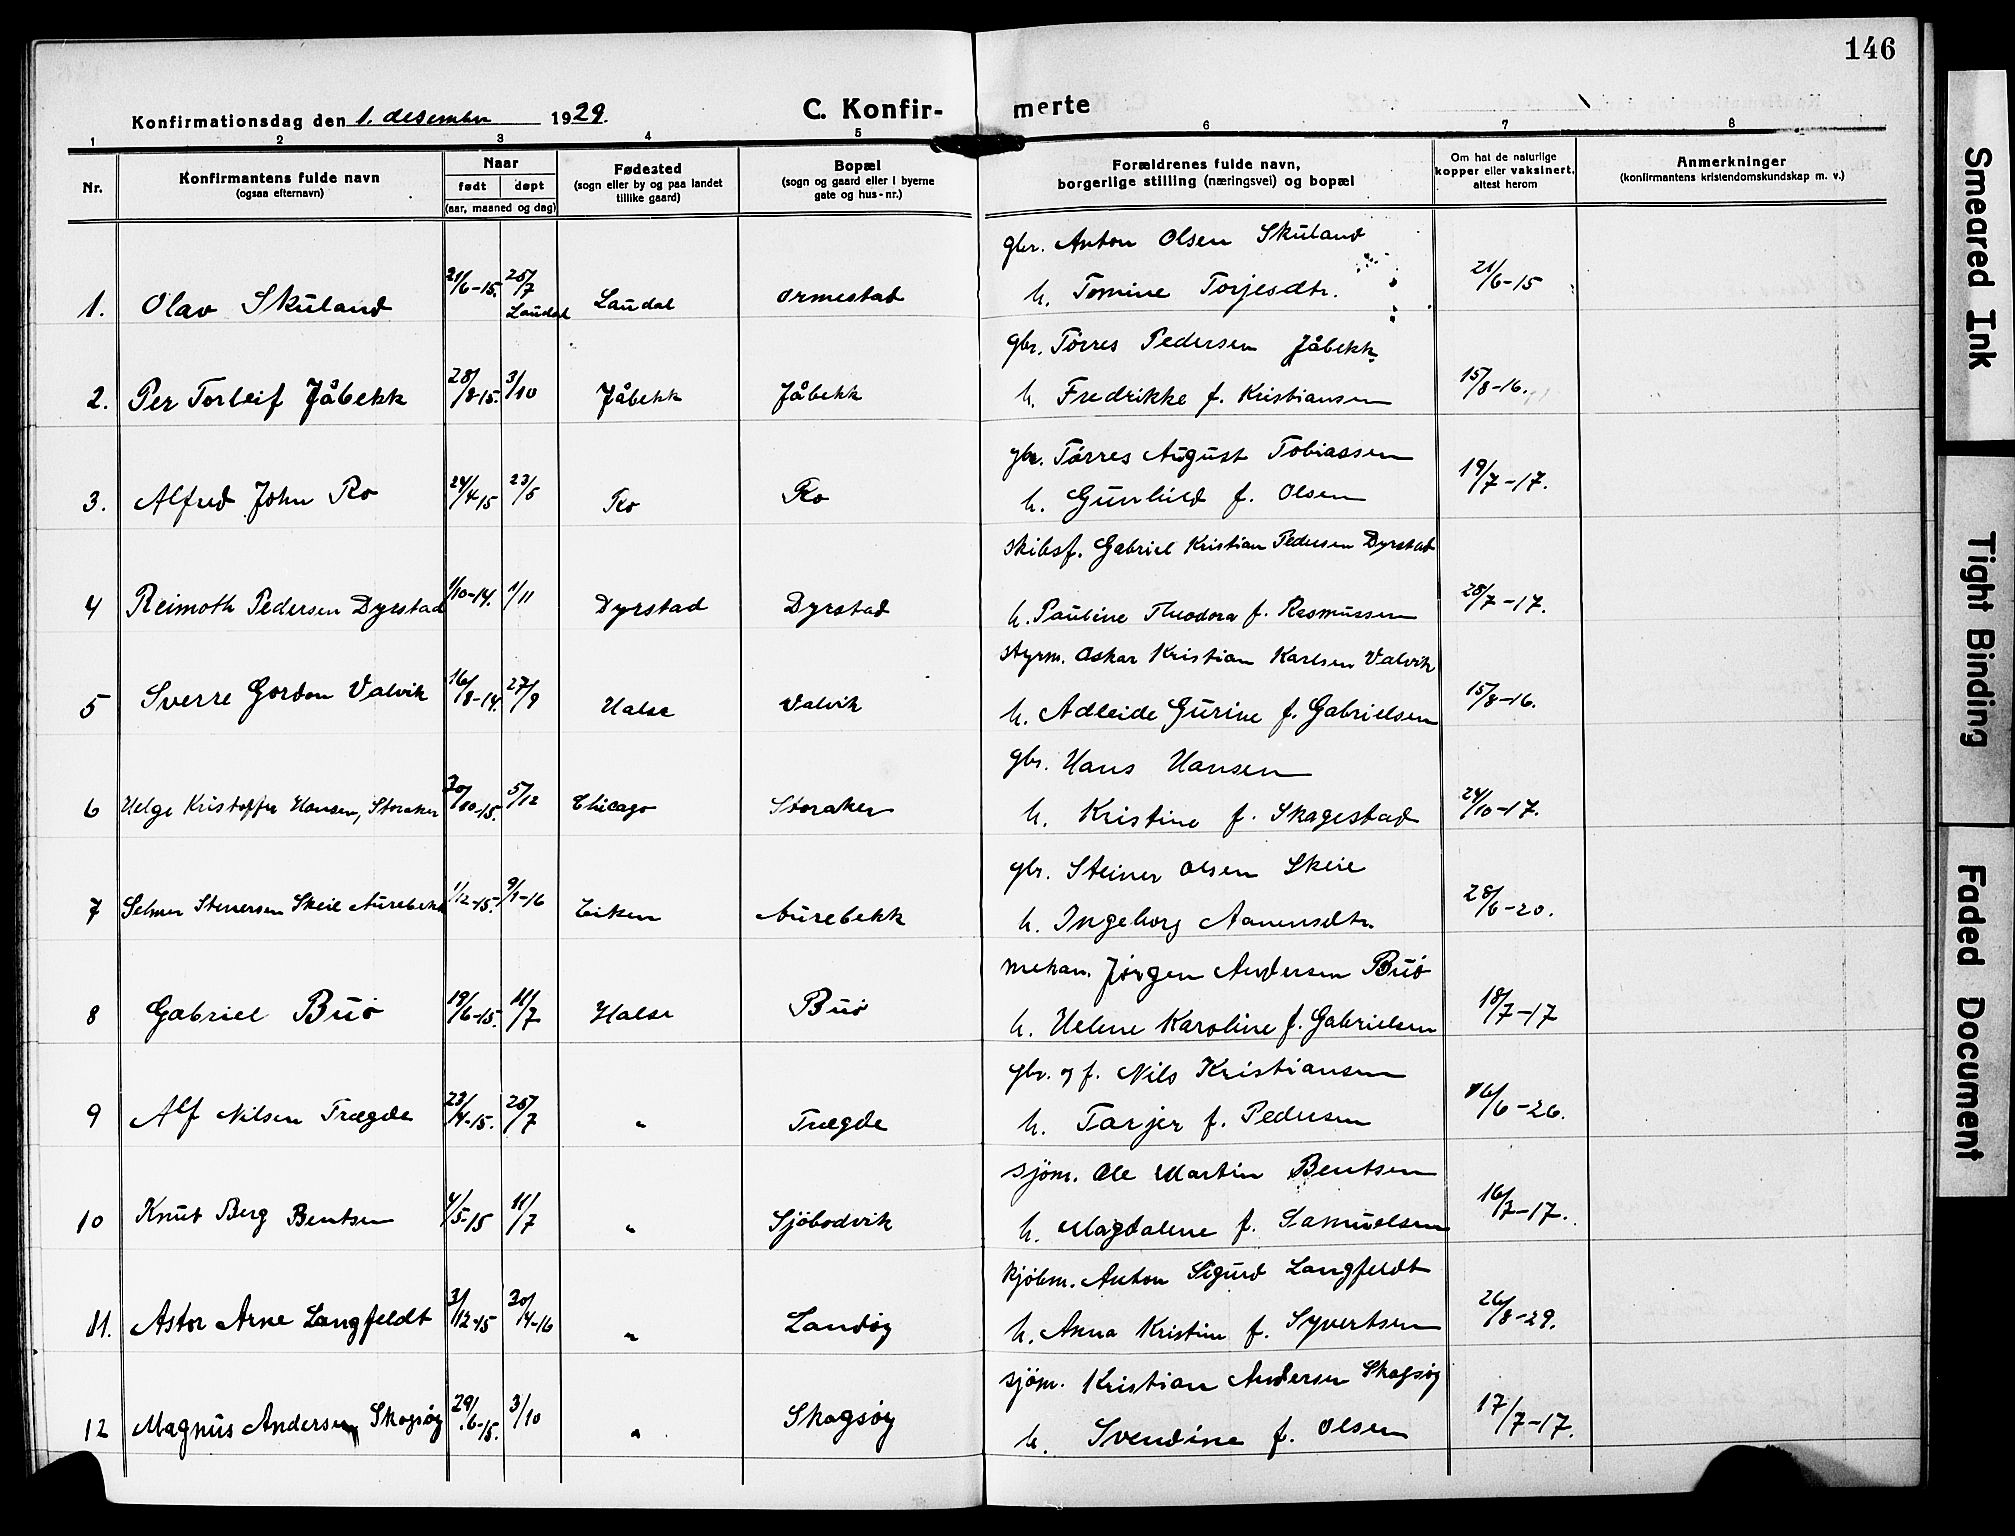 146
Konfirmationsdag den 1. desember 1929.
C. Konfirmerte
1 2 3 4 5 6 7 8
Nr.
Konfirmantens fulde navn
(ogsaa efternavn)
Naar
født døpt
(aar, maaned og dag)
Fødested
(sogn eller by og paa landet
tillike gaard)
Bopæl
(sogn og gaard eller i byerne
gate og hus-nr.)
Forældrenes fulde navn,
borgerlige stilling (næringsvei) og bopæl
Om hat de naturlige
kopper eller vaksinert,
attest herom
Anmerkninger
(konfirmantens kristendomskundskap m. v.)
gbr. Anton Olsen Skuland
1. Olav Skuland 21/6-15. 25/7 Laudal Laudal Ormestad h. Tomine Torjesdtr. 21/6-15
gbr. Torres Pedersen Jåbekk
2. Per Torleif Jåbekk 28/8-15. 3/10 Jåbekk Jåbekk h. Fredrikke f. Kristiansen 15/8-16.
gbr. Tørres August Tobiassen
3. Alfred John Ro 24/4 15 23/5 Ro Ro h. Gunhild f. Olsen 19/7-17.
skibsf. Gabriel Kristian Pedersen Dyrstad
4 Reimoth Pedersen Dyrstad 1/10-14. 1/11 Dyrstad Dyrstad h. Pauline Theodora f. Rasmussen 28/7-17.
styrm. Oskar Kristian Karlsen Valvik
5 Sverre Gordon Valvik 16/8-14. 27/9 Halse Valvik h. Adleide Gurine f. Gabrielsen 15/8-16.
gbr. Hans Hansen
6 Helge Kristoffer Hansen, Storaker 30/10-15. 5/12 Chicago Storaker h. Kristine f. Skagestad 24/10-17.
gbr. Steiner Olsen Skeie
7 Selmer Stenersen Skeie Aurebekk 1/12-15. 9/1-16 Eiken Aurebekk h. Ingeborg Aanensdtr. 28/6-20.
mekan. Jørgen Andersen Buø
8 Gabriel Buø 19/6-15. 11/7 Halse Buø h. Helene Karoline f. Gabrielsen 18/7-17
gbr. og f. Nils Kristiansen
9 Alf Nilsen Trægde 23/4-15. 25/7 " Trægde h. Tarjer f. Pedersen 16/6-26.
sjöm. Ole Martin Bentsen
10 Knut Berg Bentsen 4/5-15 11/7 " Sjöbodvik h. Magdalene f. Samuelsen 16/7-17.
kjøbm. Anton Sigurd Langfeldt
11. Astor Arne Langfeldt 31/12-15 30/4-16 " Landøy h. Anna Kristine f. Syvertsen 26/8-29.
sjöm. Kristian Andersen Skogsøy
12 Magnus Andersen Skogsøy 29/6-15. 3/10 " Skogsøy h. Svendine f. Olsen 17/7-17.
Smeared Ink
Tight Binding
Faded Document